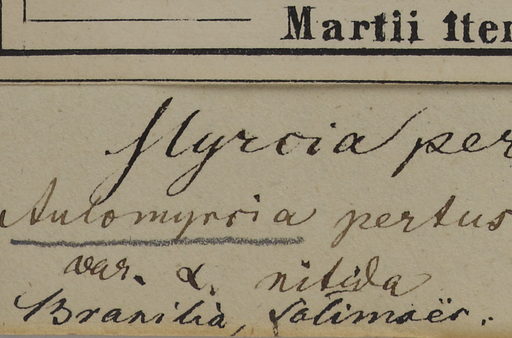 Martii Iter
Myrcia per
Aulomyrcia pertus
var. α. nitida
Brasilia, Solimoës.